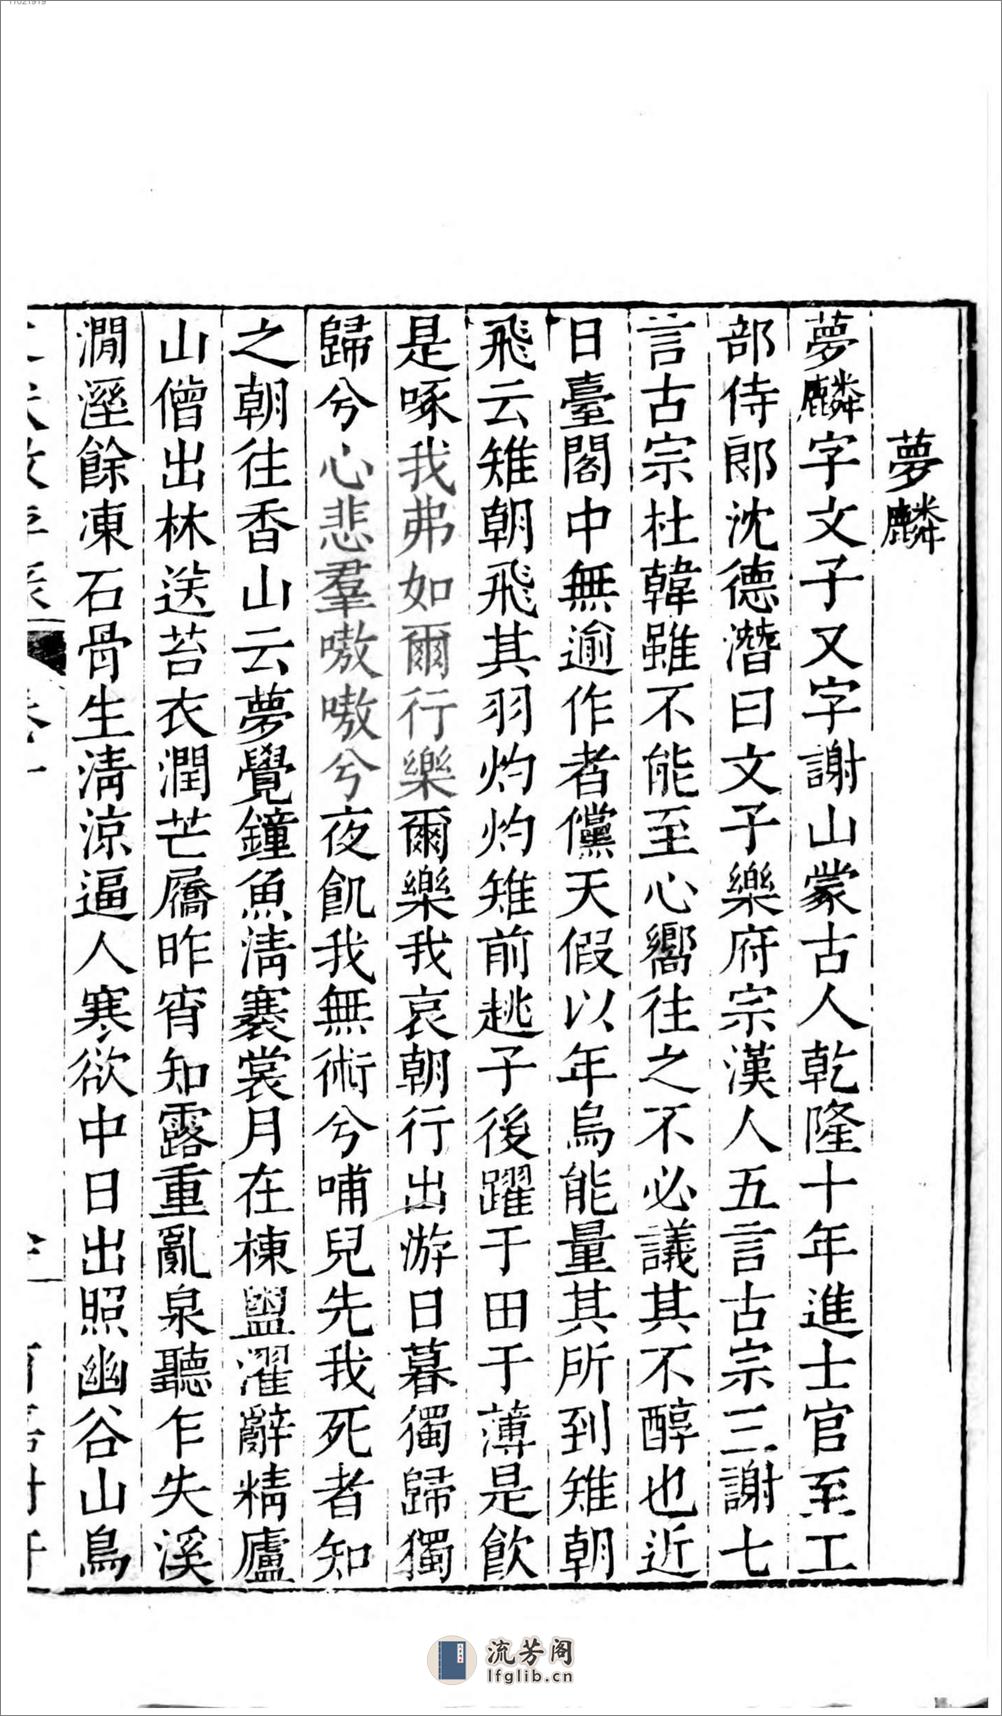 夢麟
夢麟字文子又字謝山蒙古人乾隆十年進士官至工
部侍郎沈德潛曰文子樂府宗漢人五言古宗三謝七
言古宗杜韓雖不能至心嚮往之不必議其不醇也近
日臺閣中無逾作者儻天假以年烏能量其所到雉朝
飛云雉朝飛其羽灼灼雉前趒子後躍于田于薄是飲
是啄我弗如爾行樂爾樂我哀朝行出游日暮獨歸獨
歸兮心悲羣嗷嗷兮夜飢我無術兮哺兒先我死者知
之朝往香山云夢覺鐘魚淸褰裳月在棟盥濯辭精廬
山僧出林送苔衣潤芒屩昨宵知露重亂泉聽乍失溪
澗溼餘凍石骨生淸涼逼人寒欲中日出照幽谷山鳥
流芳阁
lfglib.cn